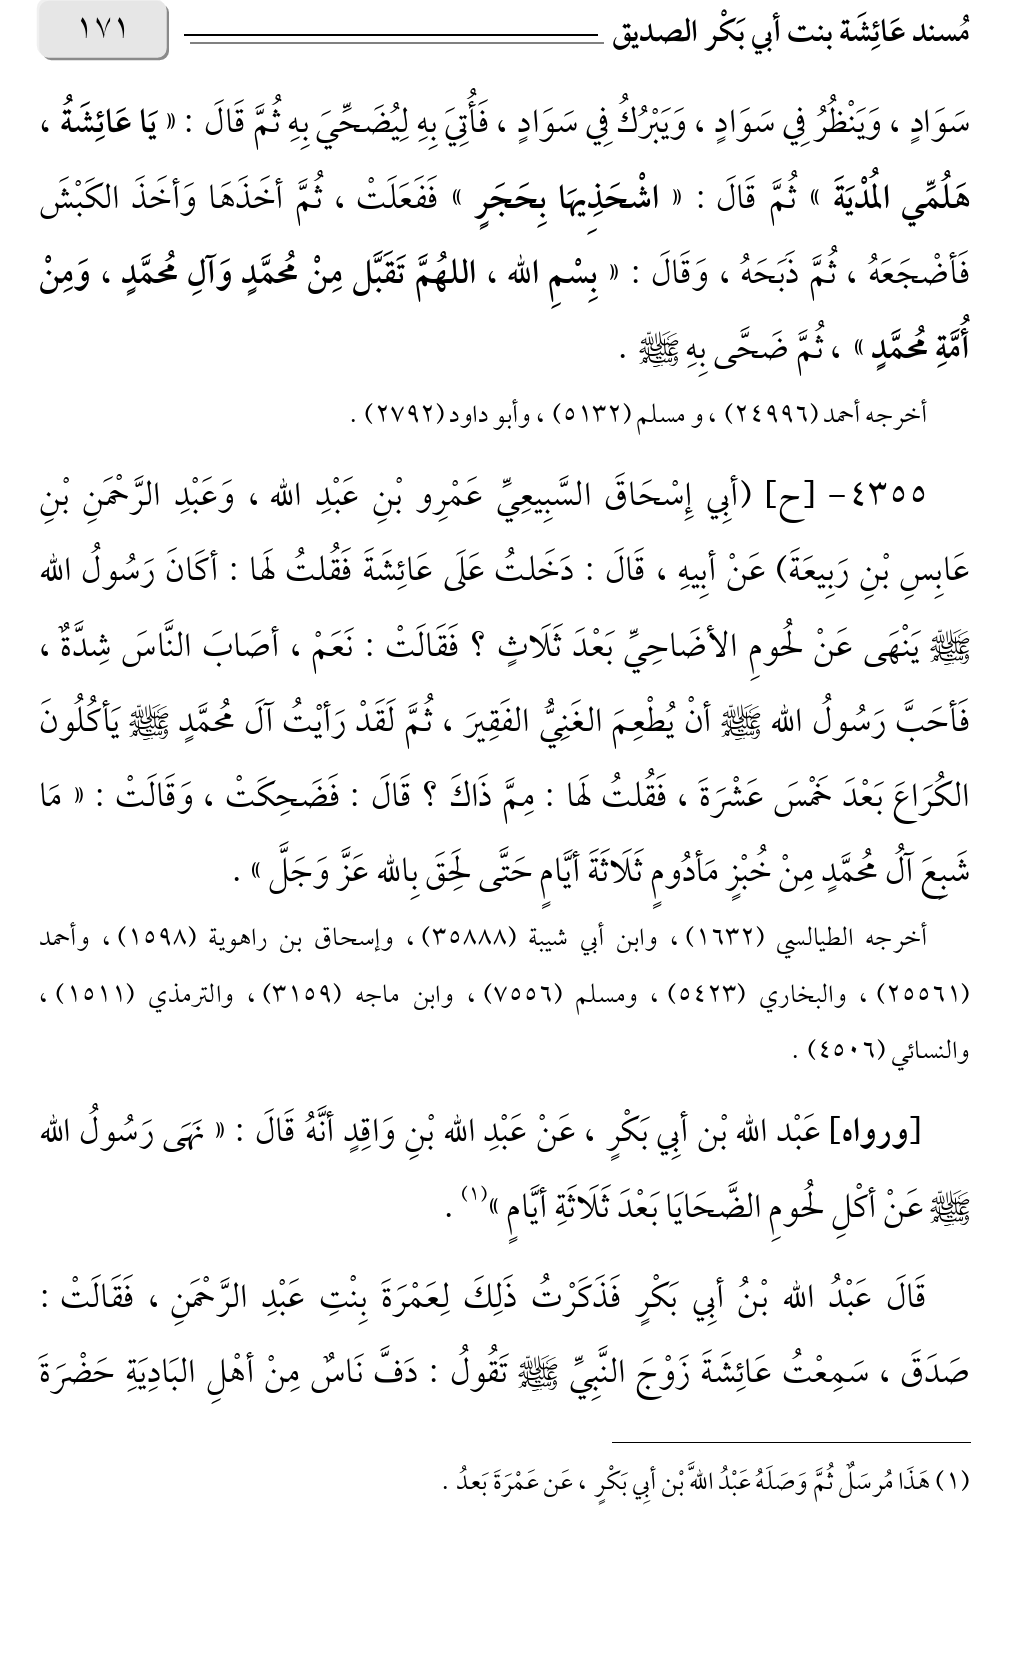 مُسند عَائِشَة بنت أبي بَكْر الصديق ١٧١
سَوَادٍ ، وَيَنْظُرُ فِي سَوَادٍ ، وَيَبْرُكُ فِي سَوَادٍ ، فَأُتِيَ بِهِ لِيُضَحِّيَ بِهِ ثُمَّ قَالَ : « يَا عَائِشَةُ ،
هَلُمِّي المُدْيَةَ » ثُمَّ قَالَ : « اشْحَذِيهَا بِحَجَرٍ » فَفَعَلَتْ ، ثُمَّ أخَذَهَا وَأخَذَ الكَبْشَ
فَأضْجَعَهُ ، ثُمَّ ذَبَحَهُ ، وَقَالَ : « بِسْمِ الله ، اللهُمَّ تَقَبَّل مِنْ مُحمَّدٍ وَآلِ مُحمَّدٍ ، وَمِنْ
أُمَّةِ مُحمَّدٍ » ، ثُمَّ ضَحَّى بِهِ ﷺ .
أخرجه أحمد (٢٤٩٩٦) ، و مسلم (٥١٣٢) ، وأبو داود (٢٧٩٢) .
٤٣٥٥- [ح] (أبِي إِسْحَاقَ السَّبِيعِيِّ عَمْرِو بْنِ عَبْدِ الله ، وَعَبْدِ الرَّحْمَنِ بْنِ
عَابِسِ بْنِ رَبِيعَةَ) عَنْ أبِيهِ ، قَالَ : دَخَلتُ عَلَى عَائِشَةَ فَقُلتُ لَها : أكَانَ رَسُولُ الله
ﷺ يَنْهَى عَنْ لُحومِ الأضَاحِيِّ بَعْدَ ثَلَاثٍ ؟ فَقَالَتْ : نَعَمْ ، أصَابَ النَّاسَ شِدَّةٌ ،
فَأحَبَّ رَسُولُ الله ﷺ أنْ يُطْعِمَ الغَنِيُّ الفَقِيرَ ، ثُمَّ لَقَدْ رَأيْتُ آلَ مُحمَّدٍ ﷺ يَأكُلُونَ
الكُرَاعَ بَعْدَ خَمْسَ عَشْرَةَ ، فَقُلتُ لَها : مِمَّ ذَاكَ ؟ قَالَ : فَضَحِكَتْ ، وَقَالَتْ : « مَا
شَبِعَ آلُ مُحمَّدٍ مِنْ خُبْزٍ مَأدُومٍ ثَلَاثَةَ أيَّامٍ حَتَّى لَحِقَ بِالله عَزَّ وَجَلَّ » .
أخرجه الطيالسي (١٦٣٢) ، وابن أبي شيبة (٣٥٨٨٨) ، وإسحاق بن راهوية (١٥٩٨) ، وأحمد
(٢٥٥٦١) ، والبخاري (٥٤٢٣) ، ومسلم (٧٥٥٦) ، وابن ماجه (٣١٥٩) ، والترمذي (١٥١١) ،
والنسائي (٤٥٠٦) .
[ورواه] عَبْد الله بْن أبِي بَكْرٍ ، عَنْ عَبْدِ الله بْنِ وَاقِدٍ أنَّهُ قَالَ : « نَهَى رَسُولُ الله
ﷺ عَنْ أكْلِ لُحومِ الضَّحَايَا بَعْدَ ثَلَاثَةِ أيَّامٍ »(١) .
قَالَ عَبْدُ الله بْنُ أبِي بَكْرٍ فَذَكَرْتُ ذَلِكَ لِعَمْرَةَ بِنْتِ عَبْدِ الرَّحْمَنِ ، فَقَالَتْ :
صَدَقَ ، سَمِعْتُ عَائِشَةَ زَوْجَ النَّبِيِّ ﷺ تَقُولُ : دَفَّ نَاسٌ مِنْ أهْلِ البَادِيَةِ حَضْرَةَ
(١) هَذَا مُرسَلٌ ثُمَّ وَصَلَهُ عَبْدُ اللهَّ بْن أبِي بَكْرٍ ، عَن عَمْرَةَ بَعدُ .